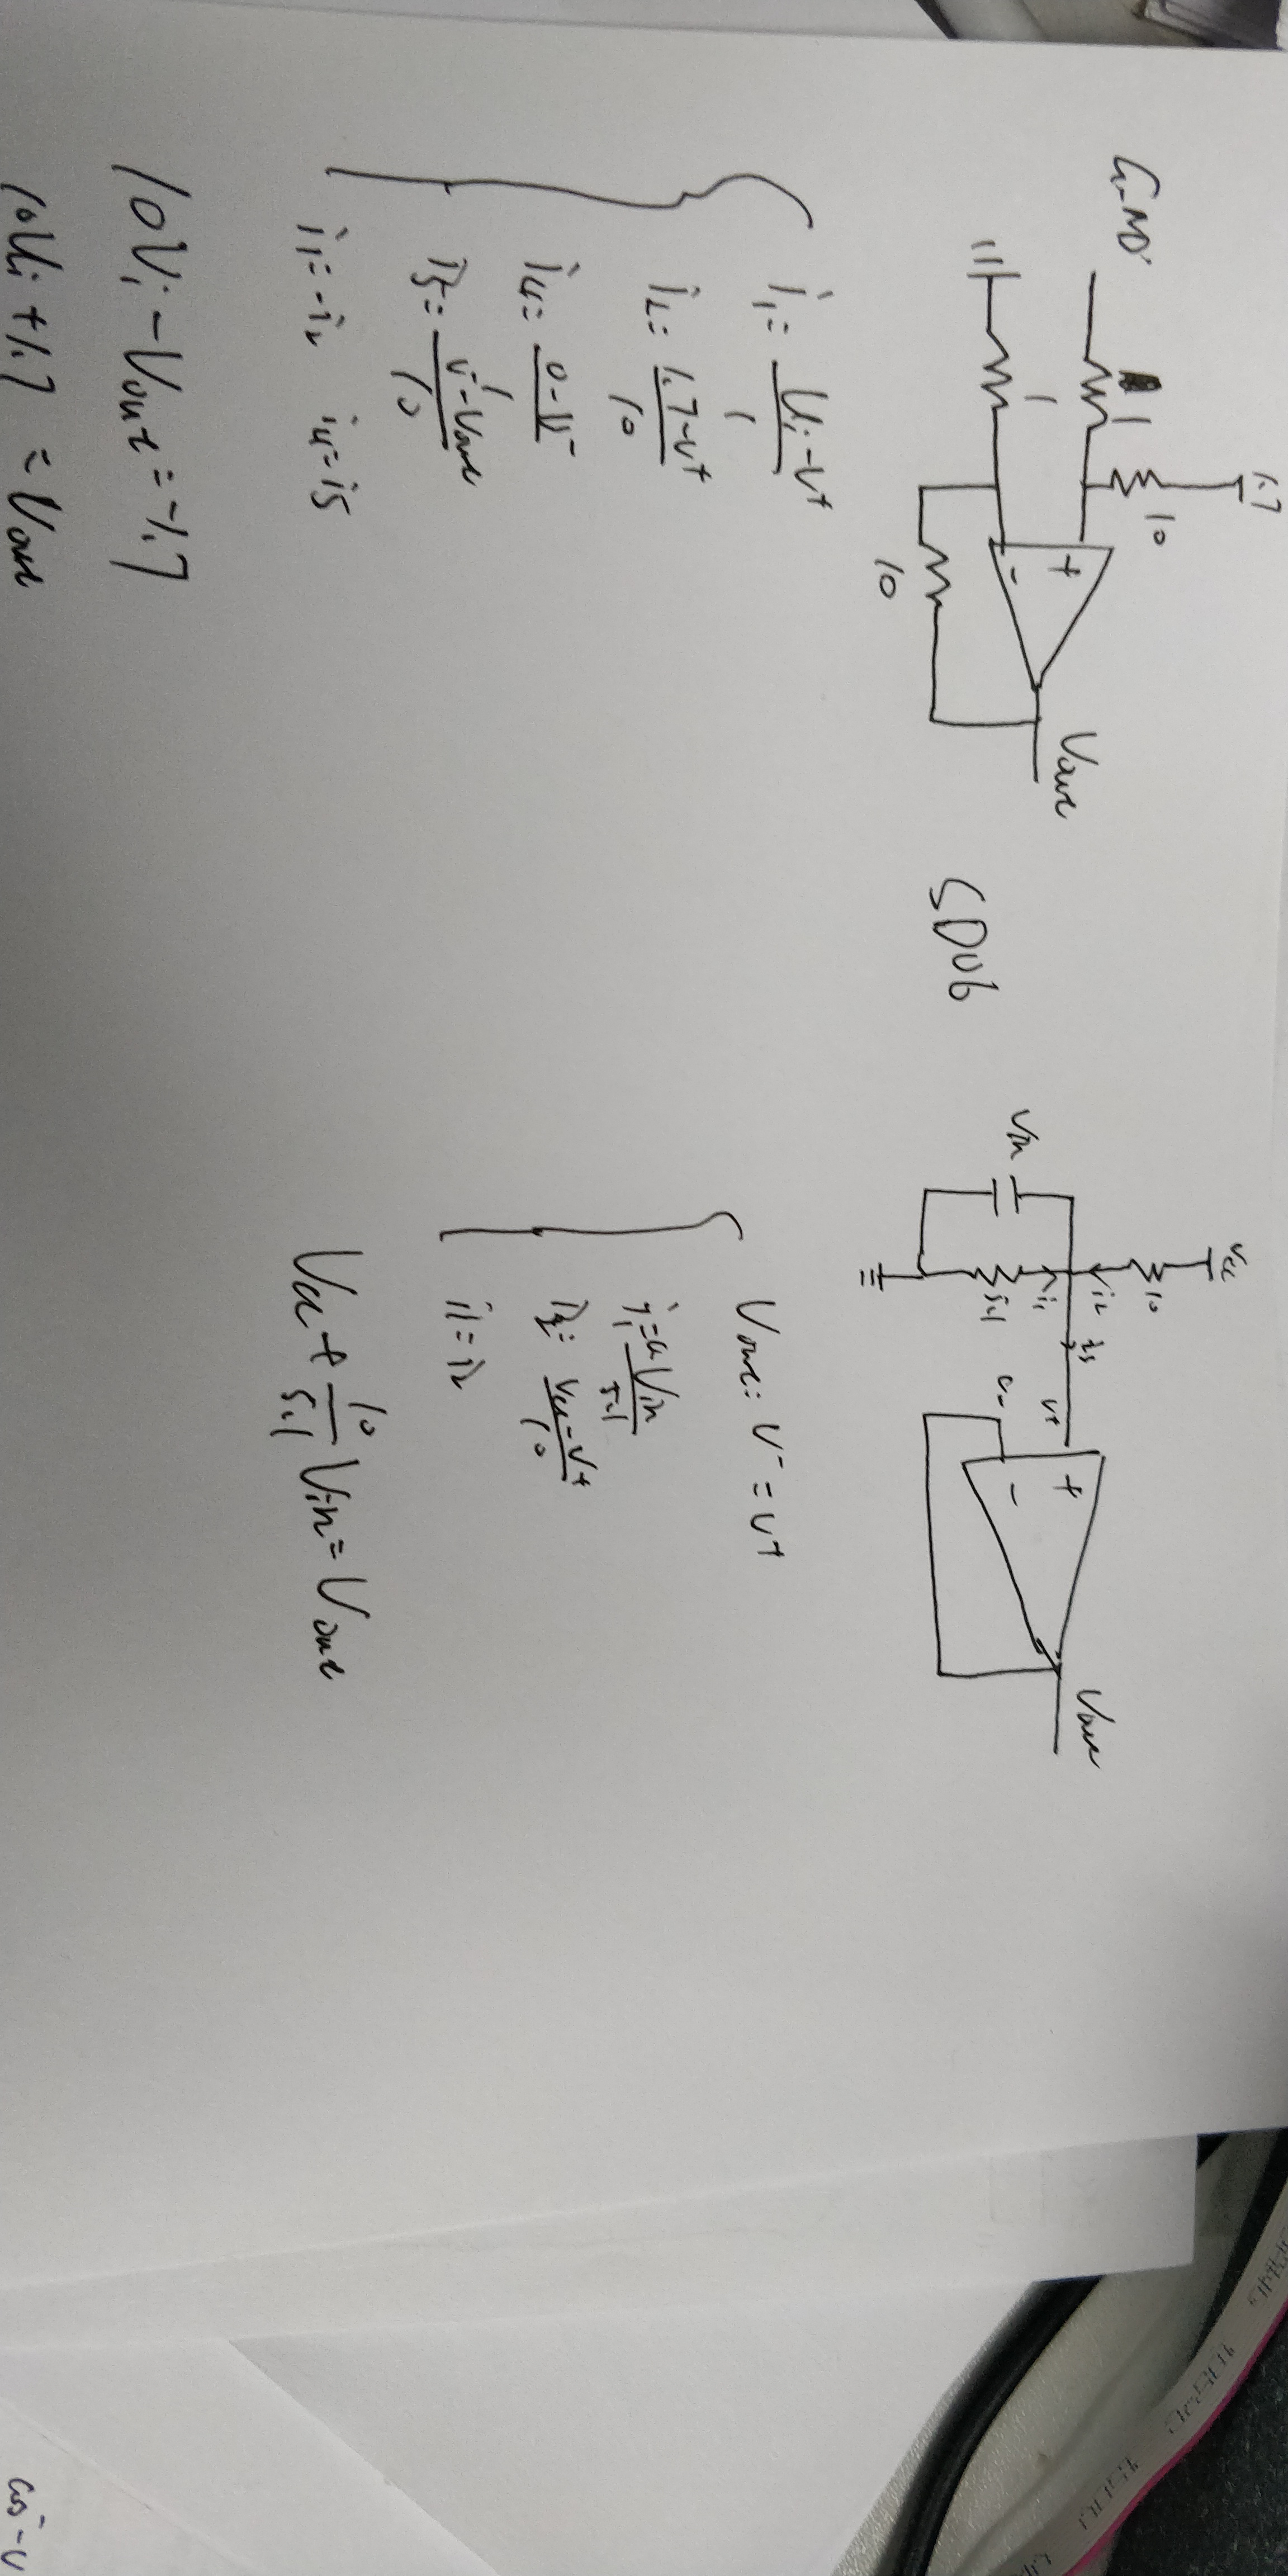 1.7
10
GND
1
1
+
-
10
Vout
i1 = Ui-V+ / 1
i2 = 1.7-V+ / 10
i4 = 0-V- / 1
i5 = V--Vout / 10
i1=-i2 i4=i5
10Vi-Vout=-1.7
10Ui+1.7=Vout
SD06
Vcc
10
i2
i3
i1
5.1
Vin
V+
V-
+
-
Vout
Vout: V-=V+
Vcc-V+ / 10
i1=i2
Vcc+10/5.1Vin=Vout